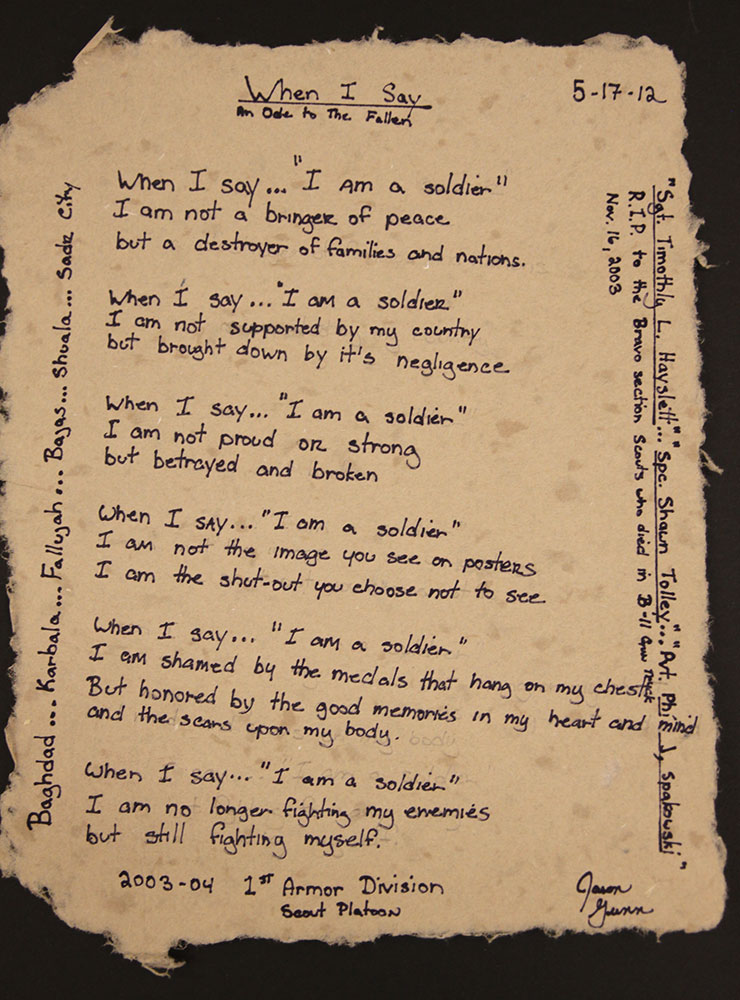 When I Say
An Ode to The Fallen
5-17-12
When I say... "I Am a soldier"
I am not a bringer of peace
but a destroyer of families and nations.
When I say... "I am a soldier"
I am not supported by my country
but brought down by it's negligence
When I say... "I am a soldier"
I am not proud or strong
but betrayed and broken
When I SAY... "I am a soldier"
I am not the image you see on posters
I am the shut-out you choose not to see
When I say... "I am a soldier"
I am shamed by the medals that hang on my chest
But honored by the good memories in my heart and mind
and the scars upon my body.
When I say... "I am a soldier"
I am no longer fighting my enemies
but still fighting myself.
2003-04 1ST Armor Division
Scout Platoon
Jason
Gunn
Baghdad... Karbala... Fallujah... Bajas... Shuala... Sadr City
"Sgt. Timothy L. Hayslett"... "Spc. Shawn Tolley"... "Pvt. Phi J, Spakowski"
R.I.P. to the Bravo section Scouts who died in B-11 Gun Truck
Nov. 16, 2003